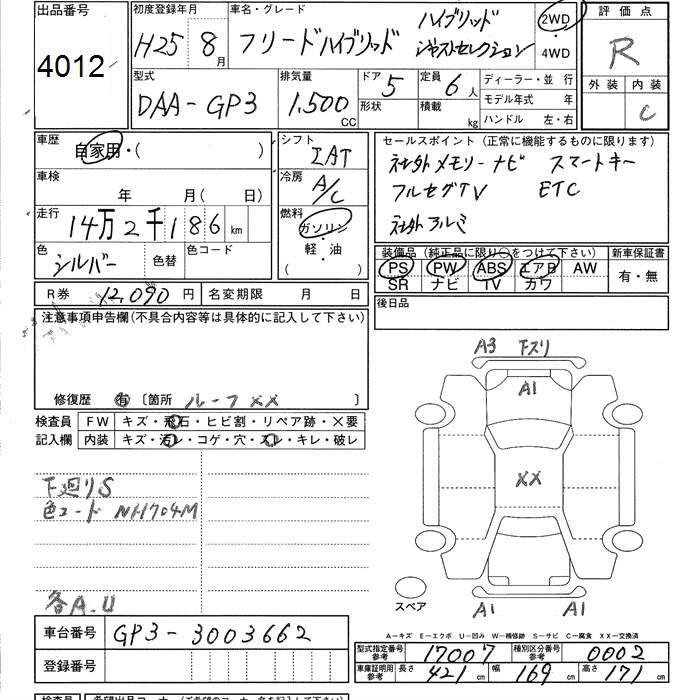 出品番号
4012
初度登録年月
H25 8月
車名・グレード
フリードハイブリッド
ハイブリッド
ジャストセレクション
2WD
・
4WD
評価点
R
外装 内装
C
型式
DAA-GP3
排気量
1.500
CC
ドア
5
形状
定員
6人
積載
kg
ディーラー・並 行
モデル年式 年
ハンドル 左・右
車歴
自家用・( )
車検
年 月( 日)
走行
14万2千186 km
色
シルバー
色替
色コード
シフト
IAT
冷房
A/C
燃料
ガソリン
・
軽・油
( )
セールスポイント (正常に機能するものに限ります)
社外メモリーナビ スマートキー
フルセグTV ETC
社外アルミ
装備品 (純正品に限り○をつけて下さい)
PS PW ABS エアB AW
SR ナビ TV カワ
新車保証書
有・無
R券 12,090円
名変期限 月 日
後日品
注意事項申告欄(不具合内容等は具体的に記入して下さい)
修復歴 有 〔箇所 ルーフ××〕
検査員 FW キズ・飛石・ヒビ割・リペア跡・×要
記入欄 内装 キズ・汚レ・コゲ・穴・スレ・キレ・破レ
下廻りS
色コード NH704M
各A.U
A3 下スリ
A1
××
スペア
A1 A1
A-キズ E-エクボ U-凹み W-補修跡 S-サビ C-腐食 XX-交換済
車台番号 GP3-3003662
登録番号
型式指定番号 参考 17007 種別区分番号 参考 0002
車庫証明用 参考 長さ 421cm 幅 169cm 高さ 171cm